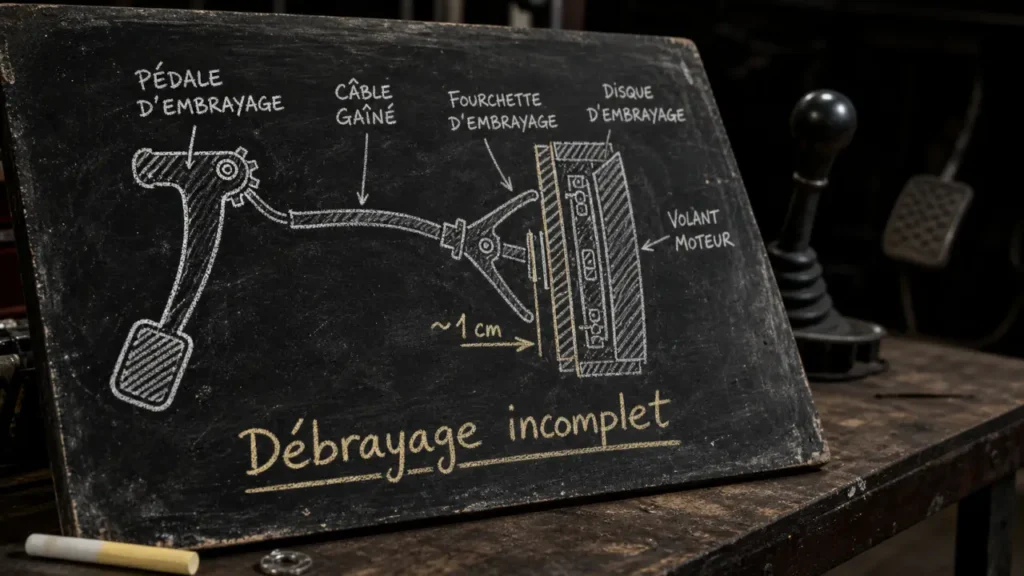 PÉDALE
D'EMBRAYAGE
CÂBLE
GAÎNÉ
FOURCHETTE
D'EMBRAYAGE
DISQUE
D'EMBRAYAGE
VOLANT
MOTEUR
~1 cm
Débrayage incomplet